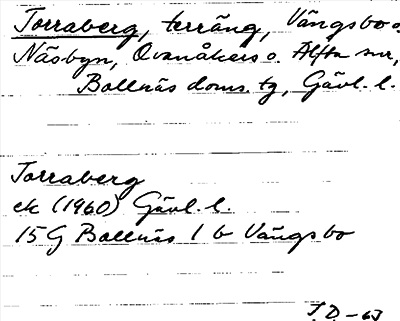 Torraberg, terräng, Vängsbo o.
Näsbyn, Ovanåkers o. Alfta snr,
Bollnäs doms. tg, Gävl. l.
Torraberg
ek (1960) Gävl. l.
15G Bollnäs 1 b Vängsbo
J.D. -63